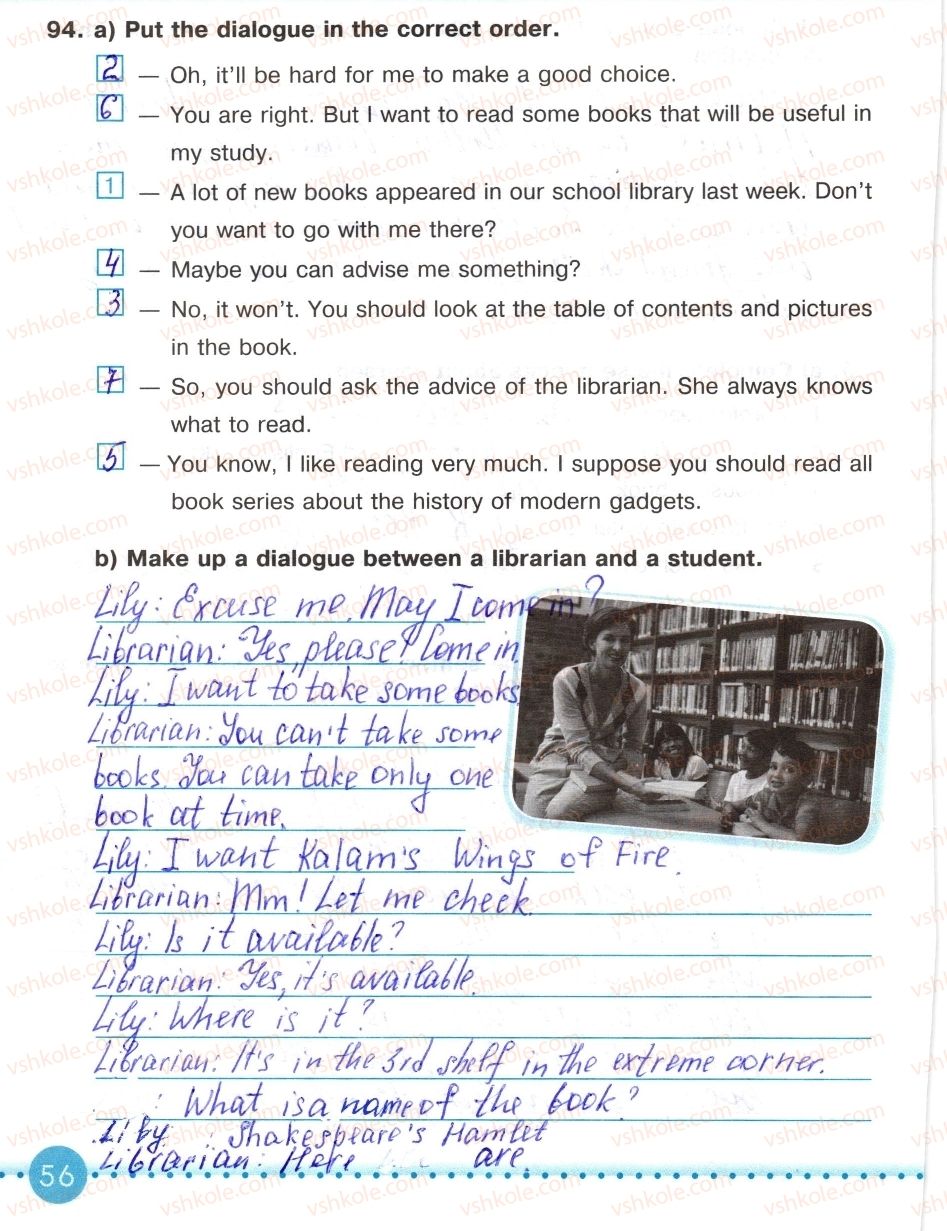 94. a) Put the dialogue in the correct order.
2 — Oh, it'll be hard for me to make a good choice.
6 — You are right. But I want to read some books that will be useful in
my study.
1 — A lot of new books appeared in our school library last week. Don't
you want to go with me there?
4 — Maybe you can advise me something?
3 — No, it won't. You should look at the table of contents and pictures
in the book.
7 — So, you should ask the advice of the librarian. She always knows
what to read.
5 — You know, I like reading very much. I suppose you should read all
book series about the history of modern gadgets.
b) Make up a dialogue between a librarian and a student.
Lily: Excuse me, May I come in?
Librarian: Yes, please! Come in.
Lily: I want to take some books
Librarian: You can't take some
books. You can take only one
book at time.
Lily: I want Kalam's Wings of Fire.
Librarian: Mm! Let me check.
Lily: Is it available?
Librarian: Yes, it's available.
Lily: Where is it?
Librarian: It's in the 3rd shelf in the extreme corner.
: What is a name of the book?
: Shakespeare's Hamlet
Librarian: Here are.
56
vshkole.com